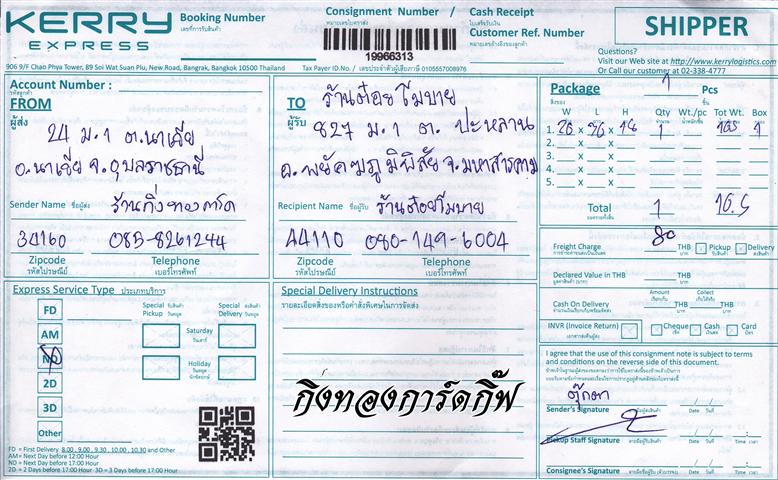 KERRY
EXPRESS
Booking Number
เลขที่การรับสินค้า
Consignment Number /
หมายเลขใบตราส่ง
19966313
Cash Receipt
ใบเสร็จรับเงิน
Customer Ref. Number
SHIPPER
Questions?
Visit our Web site at http://www.kerrylogistics.com
Or Call our customer at 02-338-4777
906 9/F Chao Phya Tower, 89 Soi Wat Suan Plu, New Road, Bangrak, Bangkok 10500 Thailand
Tax Payer ID.No. / เลขประจำตัวผู้เสียภาษี 0105557008976
Account Number :
รหัสลูกค้า
FROM
ผู้ส่ง
24 ม.1 ต.นาเยีย
อ.นาเยีย จ.อุบลราชธานี
Sender Name ชื่อผู้ส่ง ร้านกิ่งทองการ์ด
34160 083-8261244
Zipcode Telephone
รหัสไปรษณีย์ เบอร์โทรศัพท์
TO
ผู้รับ
ร้านต๋อยโมบาย
827 ม.1 ต. ปะหลาน
อ.พยัคฆภูมิพิสัย จ.มหาสารคาม
Recipient Name ชื่อผู้รับ ร้านต๋อยโมบาย
44110 080-149-6004
Zipcode Telephone
รหัสไปรษณีย์ เบอร์โทรศัพท์
Package 1 Pcs
สิ่งของ ชิ้น
W L H Qty Wt./pc Tot Wt. Box
1. 26 x 26 x 1 1
2. x x
3. x x
4. x x
5. x x
Total 1 16.5
Freight Charge 80 THB Pickup Delivery
Declared Value in THB THB
Amount Collect
Cash On Delivery THB THB
INVR (Invoice Return) Cheque Cash Card
Express Service Type ประเภทบริการ
Special Pickup
Special Delivery
FD
AM
ND
2D
3D
Other
Saturday
วันเสาร์
Holiday
วันหยุด
นักขัตฤกษ์
FD = First Delivery 8.00 , 9.00 , 9.30 , 10.00 , 10.30 and Other
AM = Next Day before 12:00 Hour
ND = Next Day before 17:00 Hour
2D = 2 Days before 17:00 Hour 3D = 3 Days before 17:00 Hour
Special Delivery Instructions
รายละเอียดสิ่งของหรือคำสั่งพิเศษในการจัดส่ง
กิ่งทองการ์ดกิ๊ฟ
I agree that the use of this consignment note is subject to terms
and conditions on the reverse side of this document.
ตุ๊กตา
Sender's Signature Date วันที่
Pickup Staff Signature Date วันที่ Time เวลา
Consignee's Signature Date วันที่ Time เวลา